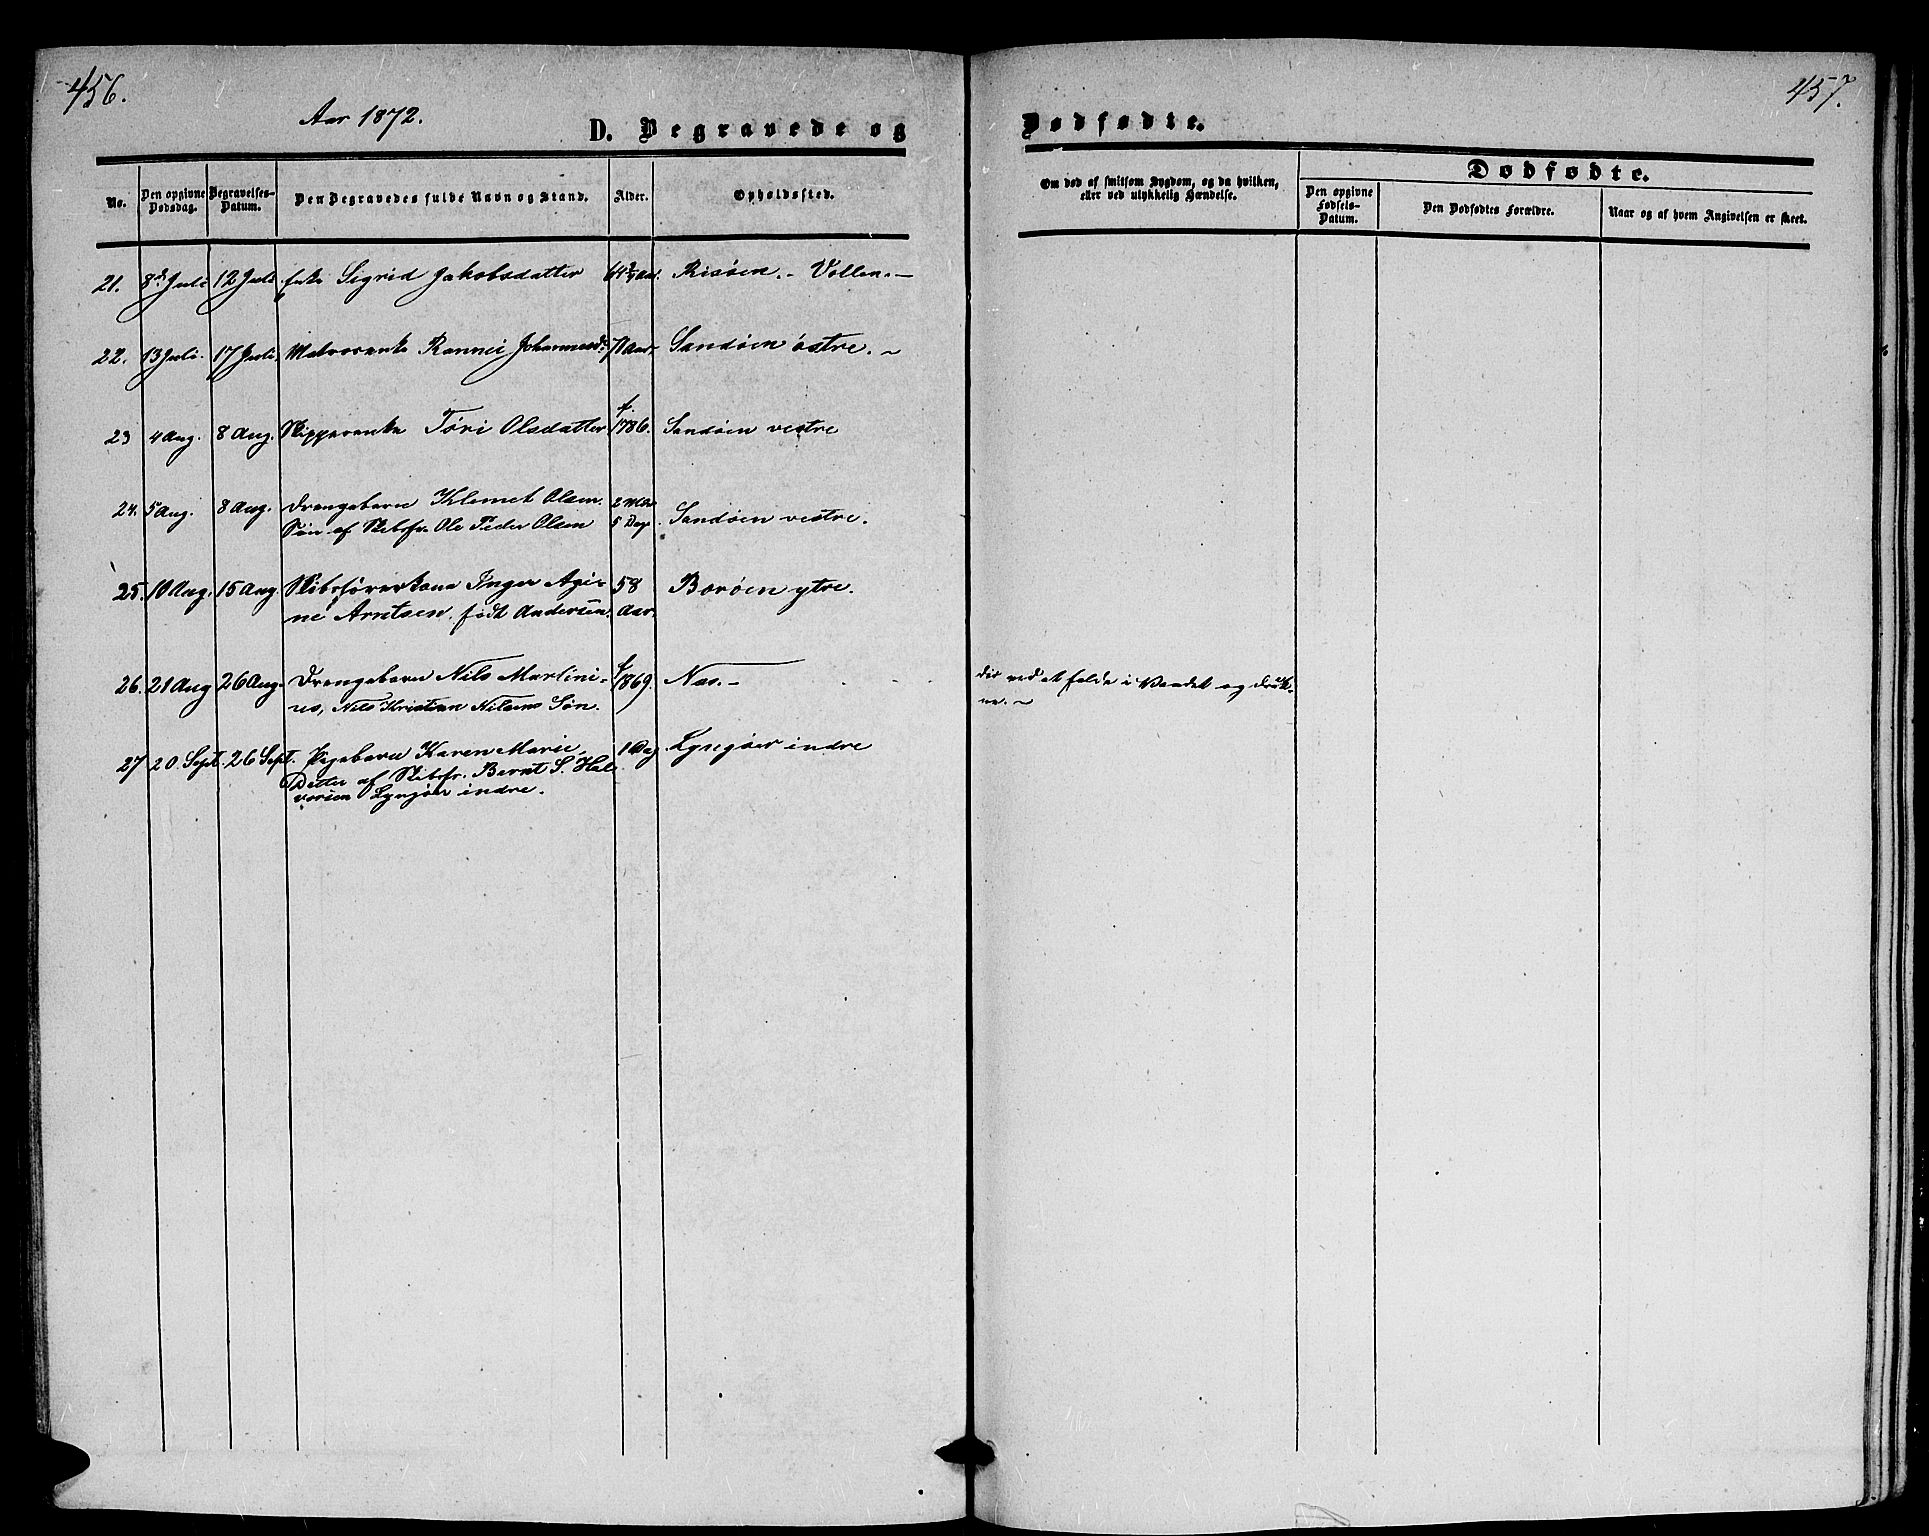 456.
Aar 1872.
D. Begravede og
No.
Den opgivne Dødsdag.
Begravelses-Datum.
Den Begravedes fulde Navn og Stand.
Alder.
Opholdssted.
21. 8de Juli 12 Juli Enke Sigrid Jakobsdatter Risøen. - Vollen. -
22. 13 Juli. 17 Juli. Matrosenke Rannei Johannesd. 71 Aar. Sandøen østre. ~
23 4 Aug. 8 Aug. Skipperenke Töri Olsdatter f. 1786. Sandøen vestre
24. 5 Aug. 8 Aug. Drengebarn Klemet Olsen. 2 Mdr
Søn af Skibsfr. Ole Peder Olsen 5 Dage. Sandøen vestre.
25. 10 Aug. 15 Aug. Skibsførerkone Inger Agi- 58 Borøen ytre.
ne Arntsen, født Andersen. Aar.
26. 21 Aug 26 Aug. Drengebarn Nils Martini- f 1869. Næs. -
us, Nils Kristian Nilsens Søn.
27 20. Sept. 26 Sept. Pigebarn Karen Marie, 1 Dag Lyngøer indre
Datter af Skibsfr. Bernt S. Hal
vorsen Lyngøer indre.
457.
Dødfødte.
Om død af smitsom Sygdom, og da hvilken,
eller ved ulykkelig Hændelse.
Dødfødte.
Den opgivne Fødsels-Datum.
Den Dødfødtes Forældre.
Naar og af hvem Angivelsen er skeet.
ved at falde i Vandet og druk-
ne. ~